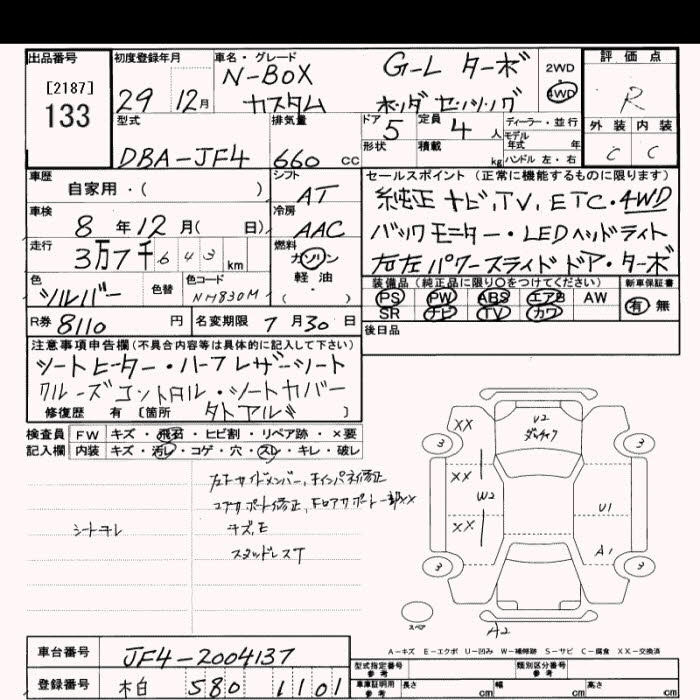 出品番号
[2187]
133
初度登録年月
29 12月
車名・グレード
N-BOX G-L ターボ
カスタム ホンダ センシング
2WD
4WD
評価点
R
外装 内装
C C
型式
DBA-JF4
排気量
660 cc
ドア 5
形状
定員 4 人
積載 kg
ディーラー・並行
モデル年式 年
ハンドル 左・右
車歴
自家用・( )
シフト
AT
車検
8 年 12 月( 日)
冷房
AAC
走行
3万7千643 km
燃料
ガソリン
軽油
・( )
色
シルバー
色替
色コード
NH830M
セールスポイント(正常に機能するものに限ります)
純正ナビ,TV,ETC・4WD
バックモニター・LEDヘッドライト
右左パワースライドドア・ターボ
装備品(純正品に限り○をつけてください)
PS PW ABS エアB AW
SR ナビ TV カワ
新車保証書
有 無
R券 8110 円
名変期限 7 月 30 日
後日品
注意事項申告欄(不具合内容等は具体的に記入して下さい)
シートヒーター・ハーフレザーシート
クルーズコントロル・シートカバー
修復歴 有 [箇所 ]
検査員 FW キズ・飛石・ヒビ割・リペア跡・×要
記入欄 内装 キズ・汚レ・コゲ・穴・スレ・キレ・破レ
キズ,E
スタッドレスT
XX
U2
3
3
XX
W2
XX
U1
A1
3
3
スペア
A2
A-キズ E-エクボ U-凹み W-補修跡 S-サビ C-腐食 XX-交換済
車台番号
JF4-2004137
登録番号
580 1101
型式指定番号
参考
類別区分番号
参考
車庫証明用
参考
長さ cm
幅 cm
高さ cm